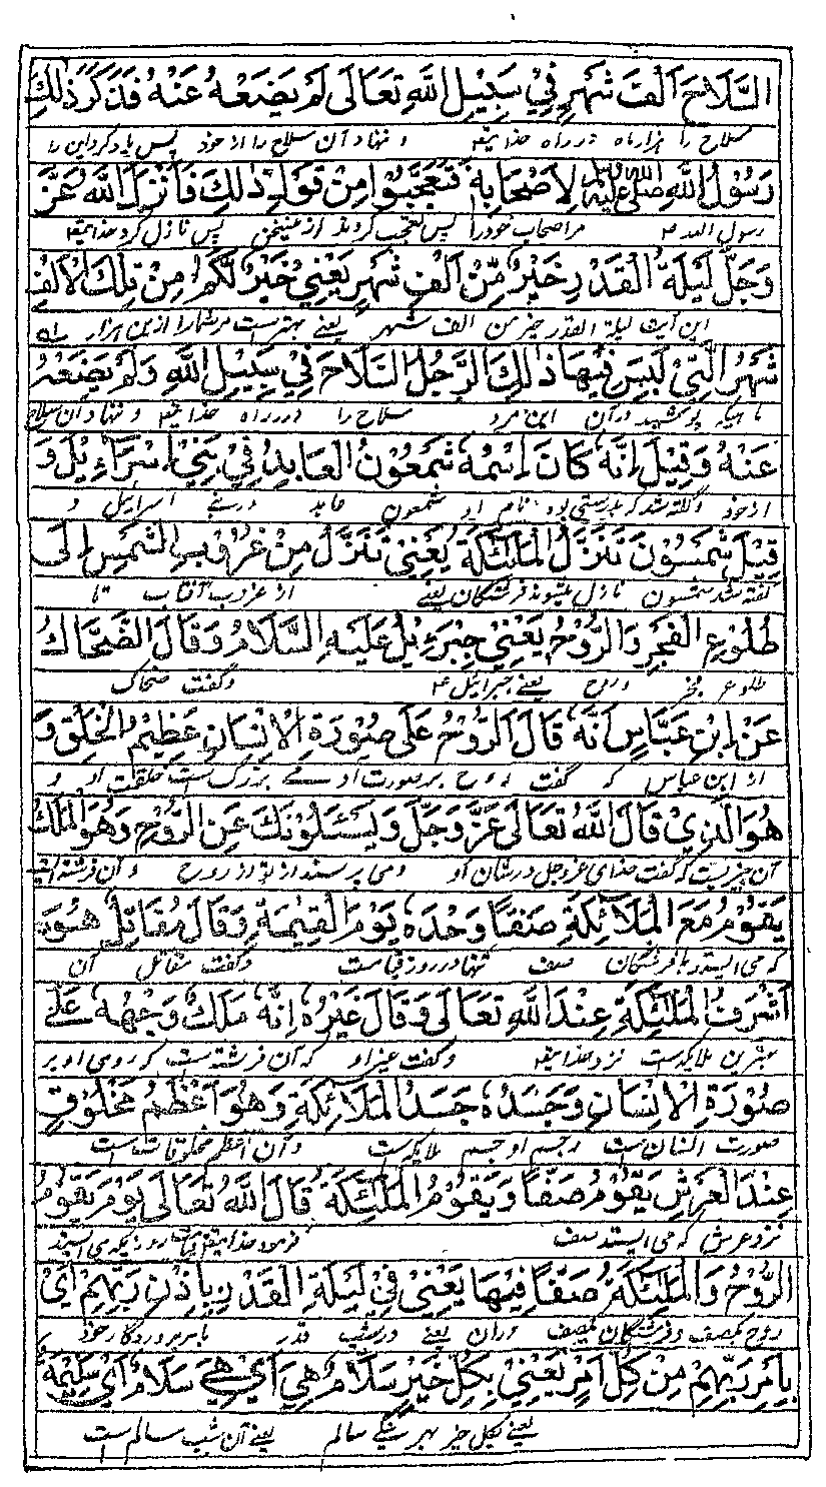 السَّلَاحَ اَلْفَ شَهْرٍ فِيْ سَبِيْلِ اللّٰهِ تَعَالَى لَمْ يَضَعْهُ عَنْهُ فَذَكَرَ ذٰلِكَ
سلاح را هزار ماه در راه خدایتعه و نهاد آن سلاح را از خود پس یاد کرد این را
رَسُوْلُ اللّٰهِ صلى الله عليه وسلم لِاَصْحَابِهٖ فَتَعَجَّبُوْا مِنْ قَوْلِ ذٰلِكَ فَاَنْزَلَ اللّٰهُ عَزَّ
رسول الله ص مر اصحاب خود را پس تعجب کردند از پس نازل کرد خدایتعه
وَجَلَّ لَيْلَةُ الْقَدْرِ خَيْرٌ مِّنْ اَلْفِ شَهْرٍ يَعْنِيْ خَيْرٌ لَّكُمْ مِنْ تِلْكَ الْاَلْفِ
این آیت لیلة القدر خیر من الف شهر یعنے بهتر است مر شما را ازین هزار ماه
شَهْرُ الَّتِيْ لَبِسَ فِيْهَا ذٰلِكَ الرَّجُلُ السَّلَاحَ فِيْ سَبِيْلِ اللّٰهِ وَلَمْ يَضَعْهُ
ماهیکه پوشید در آن این مرد سلاح را در راه خدایتعه و نهاد آن سلاح
عَنْهُ وَقِيْلَ اِنَّهٗ كَانَ اِسْمُهٗ شَمْعُوْنُ الْعَابِدُ فِيْ بَنِيْ اِسْرَاءِيْلَ وَ
از خود و گفته شد که بدرستی بود نام او شمعون عابد در بنے اسرائیل و
قِيْلَ شَمْسُوْنَ تَنَزَّلُ الْمَلٰئِكَةُ يَعْنِيْ تَنَزَّلُ مِنْ غُرُوْبِ الشَّمْسِ اِلَى
گفته شد شمسون نازل میشوند فرشتگان یعنے از غروب آفتاب تا
طُلُوْعِ الْفَجْرِ وَالرُّوْحُ يَعْنِيْ جِبْرَءِيْلُ عَلَيْهِ السَّلَامُ وَقَالَ الضَّحَّاكُ
طلوع فجر و روح یعنے جبرائیل ع و گفت ضحاک
عَنْ اِبْنِ عَبَّاسٍ اَنَّهٗ قَالَ الرُّوْحُ عَلَى صُوْرَةِ الْاِنْسَانِ عَظِيْمُ الْخَلْقِ وَ
از ابن عباس که گفت روح بر صورت آدمے بزرگ است خلقت او و
هُوَ الَّذِيْ قَالَ اللّٰهُ تَعَالَى عَزَّ وَجَلَّ وَيَسْئَلُوْنَكَ عَنِ الرُّوْحِ وَهُوَ الْمَلَكُ
آن چیزیست که گفت خدای عزوجل در شان او و می پرسند از تو از روح و آن فرشته
يَقُوْمُ مَعَ الْمَلَائِكَةِ صَفًّا وَحْدَهٗ يَوْمَ الْقِيٰمَةِ وَقَالَ مُقَاتِلُ هُوَ
که می ایستد با فرشتگان صف تنها در روز قیامت و گفت مقاتل آن
اَشْرَفُ الْمَلٰئِكَةِ عِنْدَ اللّٰهِ تَعَالَى وَقَالَ غَيْرُهٗ اِنَّهٗ مَلَكٌ وَجْهُهٗ عَلٰے
بهترین ملایکه است نزد خدایتعه و گفت غیر او که آن فرشته است که روی او بر
صُوْرَةِ الْاِنْسَانِ وَجَسَدُهٗ جَسَدُ الْمَلَائِكَةِ وَهُوَ اَعْظَمُ مَخْلُوْقٍ
صورت انسان است و جسم او جسم ملایکه است و آن اعظم مخلوقات است
عِنْدَ الْعَرْشِ يَقُوْمُ صَفًّا وَيَقُوْمُ الْمَلٰئِكَةُ قَالَ اللّٰهُ تَعَالَى يَوْمَ يَقُوْمُ
نزد عرش که می ایستد صف فرمود خدایتعه روزیکه می ایستد
الرُّوْحُ وَالْمَلٰئِكَةُ صَفًّا فِيْهَا يَعْنِيْ فِيْ لَيْلَةِ الْقَدْرِ بِاِذْنِ رَبِّهِمْ اَيْ
روح یکصف و فرشتگان یکصف در آن یعنے در شب قدر بامر پروردگار خود
بِاَمْرِ رَبِّهِمْ مِنْ كُلِّ اَمْرٍ يَعْنِيْ بِكُلِّ خَيْرٍ سَلَامٌ هِيَ اَيْ هِيَ سَلَامٌ اَيْ سَلِيْمَةٌ
یعنے بکل خیر سالم یعنے آن شب سالم است